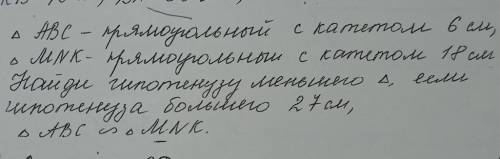 △ ABC – прямоугольный с катетом 6 см,
△ MNK - прямоугольный с катетом 18 см
Найди гипотенузу меньшего △, если
гипотенуза большего 27 см,
△ ABC ∽ △ MNK.